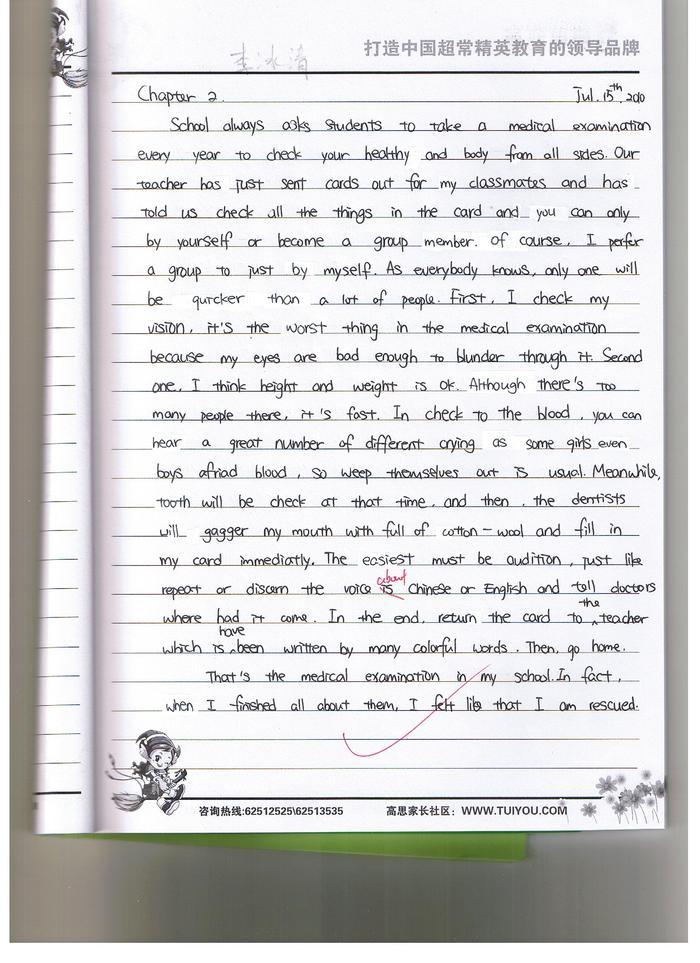 打造中国超常精英教育的领导品牌
李冰清
Chapter 2. Jul. 15th. 2010
School always asks students to take a medical examination
every year to check your healthy and body from all sides. Our
teacher has just sent cards out for my classmates and has
told us check all the things in the card and you can only
by yourself or become a group member. Of course, I perfer
a group to just by myself. As everybody knows, only one will
be quicker than a lot of people. First, I check my
vision, it's the worst thing in the medical examination
because my eyes are bad enough to blunder through it. Second
one, I think height and weight is ok. Although there's too
many people there, it's fast. In check to the blood, you can
hear a great number of different crying as some girls even
boys afriad blood, so weep themselves out is usual. Meanwhile,
tooth will be check at that time, and then, the dentists
will gagger my mouth with full of cotton-wool and fill in
my card immediatly. The easiest must be audition, just like
repeat or discern the voice is about Chinese or English and tell doctors
where had it come. In the end, return the card to the teacher
which is have been written by many colorful words. Then, go home.
That's the medical examination in my school. In fact,
when I finished all about them, I felt like that I am rescued.
咨询热线:62512525\62513535 高思家长社区: WWW.TUIYOU.COM